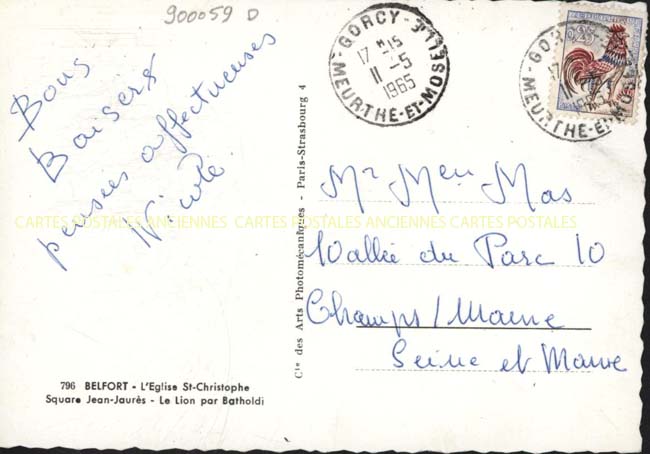 900059 D
Bons
Baisers
pensées affectueuses
Nicole.
GORCY - MEURTHE-ET-MOSELLE
17 H 15
11 - 5
1965
GORCY
MEURTHE-ET-MOSELLE
0,25
Cie des Arts Photomécaniques - Paris-Strasbourg 4
Mr Meu Mas
10 allée du Parc 10
Champs/Marne
Seine et Marne
CARTES POSTALES ANCIENNES CARTES POSTALES ANCIENNES CARTES POSTALES
796 BELFORT - L'Eglise St-Christophe
Square Jean-Jaurès - Le Lion par Batholdi